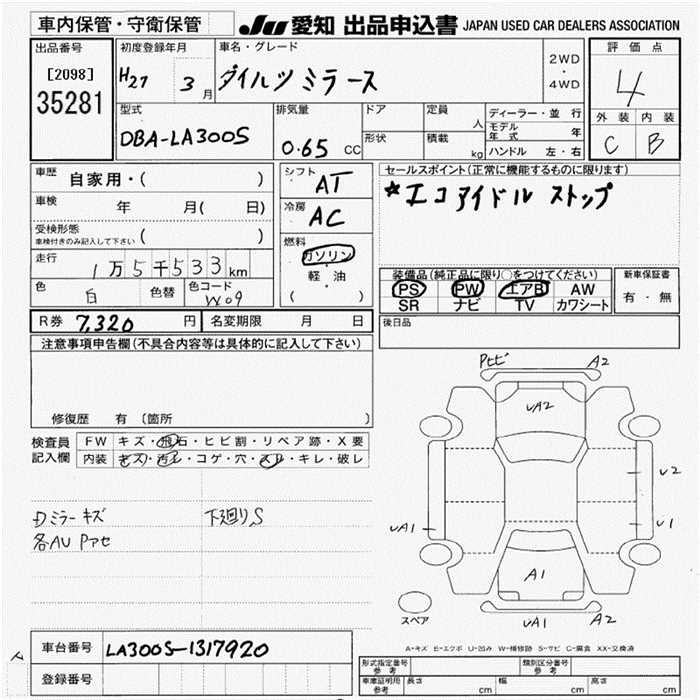 車内保管・守衛保管
JU 愛知 出品申込書 JAPAN USED CAR DEALERS ASSOCIATION
出品番号
[2098]
35281
初度登録年月
H27 3月
車名・グレード
ダイハツ ミラース
2WD
・
4WD
評価点
4
外装 内装
C B
型式
DBA-LA300S
排気量
0.65 CC
ドア
形状
定員 人
積載 kg
ディーラー・並行
モデル年式 年
ハンドル 左・右
車歴 自家用・( )
車検 年 月( 日)
受検形態
車検付きのみ記入して下さい ( )
走行 1万5千533km
色 白 色替 色コード W09
シフト AT
冷房 AC
燃料
ガソリン
軽・油
( )
セールスポイント(正常に機能するものに限ります)
*エコアイドル ストップ
装備品(純正品に限り○をつけてください)
PS PW エアB AW
SR ナビ TV カワシート
新車保証書
有・無
R券 7,320円 名変期限 月 日
後日品
注意事項申告欄(不具合内容等は具体的に記入して下さい)
修復歴 有 〔箇所 〕
検査員記入欄
FW キズ・飛石・ヒビ割・リペア跡・X要
内装 キズ・汚レ・コゲ・穴・スレ・キレ・破レ
Dミラーキズ 下廻りS
各AU Pアセ
Pヒビ A2
UA2
U2
UA1 U1
A1
UA1 A2
スペア
A-キズ E-エクボ U-凹み W-補修跡 S-サビ C-腐食 XX-交換済
車台番号 LA300S-1317920
登録番号
形式指定番号 参考 類別区分番号 参考
車庫証明用 参考 長さ cm 幅 cm 高さ cm